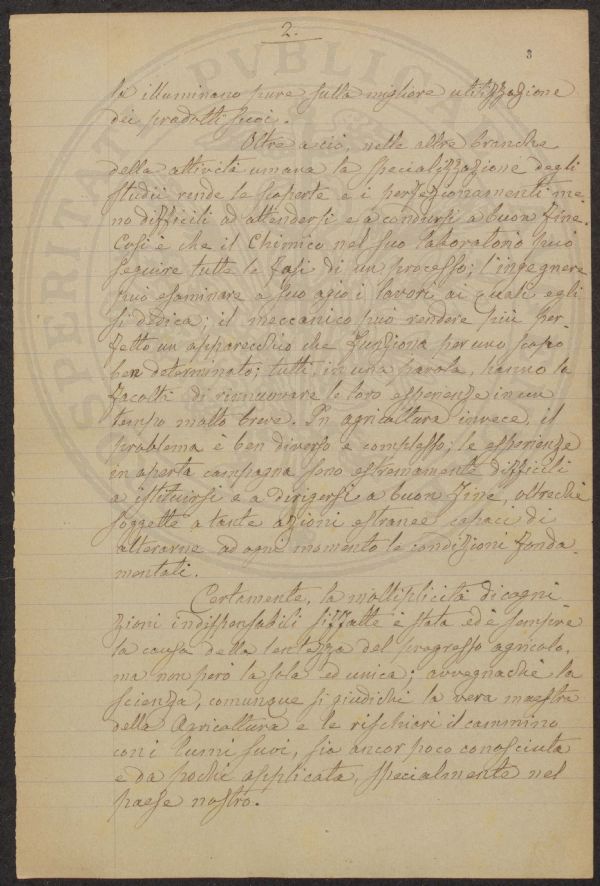 2.
8
lo illuminano pure sulla migliore utilizzazione
dei prodotti suoi.
Oltre a ciò, nelle altre branche
della attività umana la specializzazione degli
studii rende le scoperte e i perfezionamenti me-
no difficili ad attendersi e a condursi a buon fine.
Così è che il Chimico nel suo laboratorio può
seguire tutte le fasi di un processo; l'ingegnere
può esaminare a suo agio i lavori ai quali egli
si dedica; il meccanico può rendere più per-
fetto un apparecchio che funziona per uno scopo
ben determinato; tutti, in una parola, hanno la
facoltà di rinnuovare le loro esperienze in un
tempo molto breve. In agricoltura invece, il
problema è ben diverso e complesso; le esperienze
in aperta campagna sono estremamente difficili
a istituirsi e a dirigersi a buon fine, oltrechè
soggette a tante azioni estranee capaci di
alterarne ad ogni momento le condizioni fonda-
mentali.
Certamente, la moltiplicità di cogni
zioni indispensabili siffatte è stata ed è sempre
la causa della lentezza del progresso agricolo,
ma non però la sola ed unica; avvegnachè la
scienza, comunque si giudichi la vera maestra
della Agricoltura e le rischiari il cammino
con i lumi suoi, sia ancor poco conosciuta
e da pochi applicata, specialmente nel
paese nostro.
SPERITAT PVBLICAE